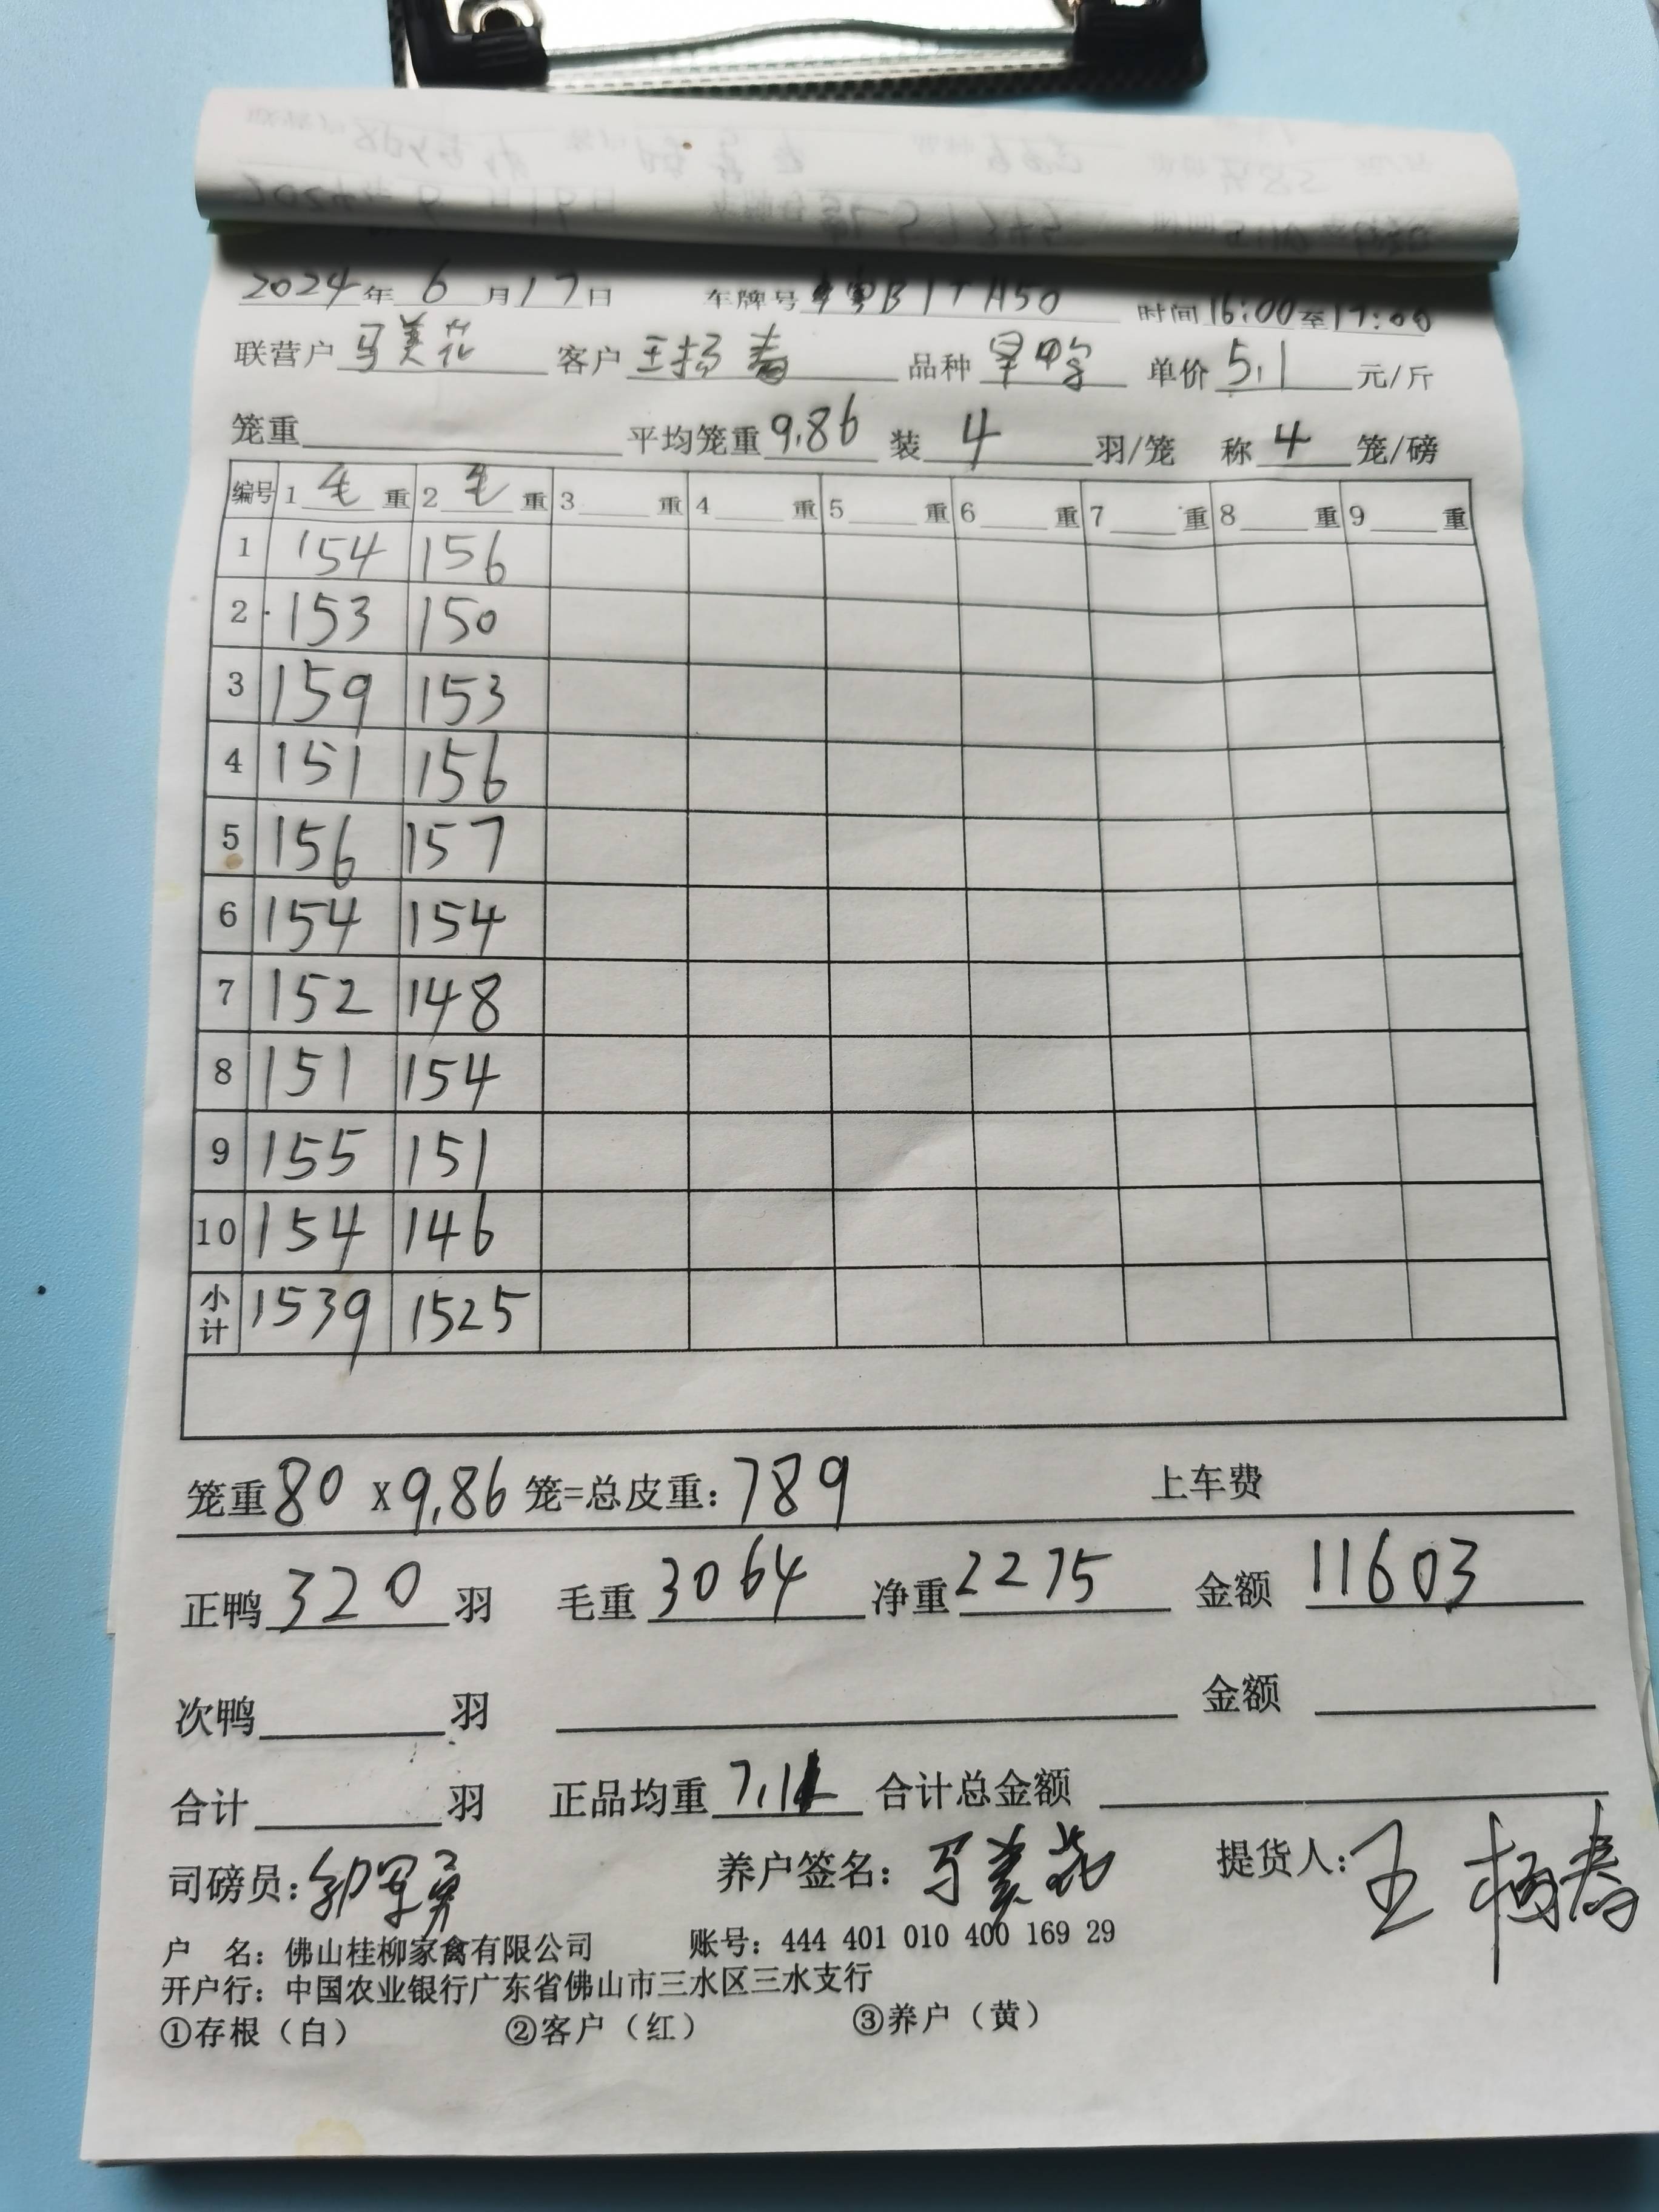 2024年6月17日 车牌号 时间16:00至17:00
联营户马美花 客户王杨春 品种 单价5.1元/斤
笼重 平均笼重9.86 装4羽/笼 称4笼/磅
编号 1毛重 2毛重 3重 4重 5重 6重 7重 8重 9重
1 154 156
2 153 150
3 159 153
4 151 156
5 156 157
6 154 154
7 152 148
8 151 154
9 155 151
10 154 146
小计 1539 1525
笼重80 x9.86笼=总皮重：789 上车费
正鸭320羽 毛重3064 净重2275 金额11603
次鸭 羽 金额
合计 羽 正品均重7.11 合计总金额
司磅员： 养户签名：马美花 提货人：王杨春
户 名：佛山桂柳家禽有限公司 账号：444 401 010 400 169 29
开户行：中国农业银行广东省佛山市三水区三水支行
①存根（白） ②客户（红） ③养户（黄）